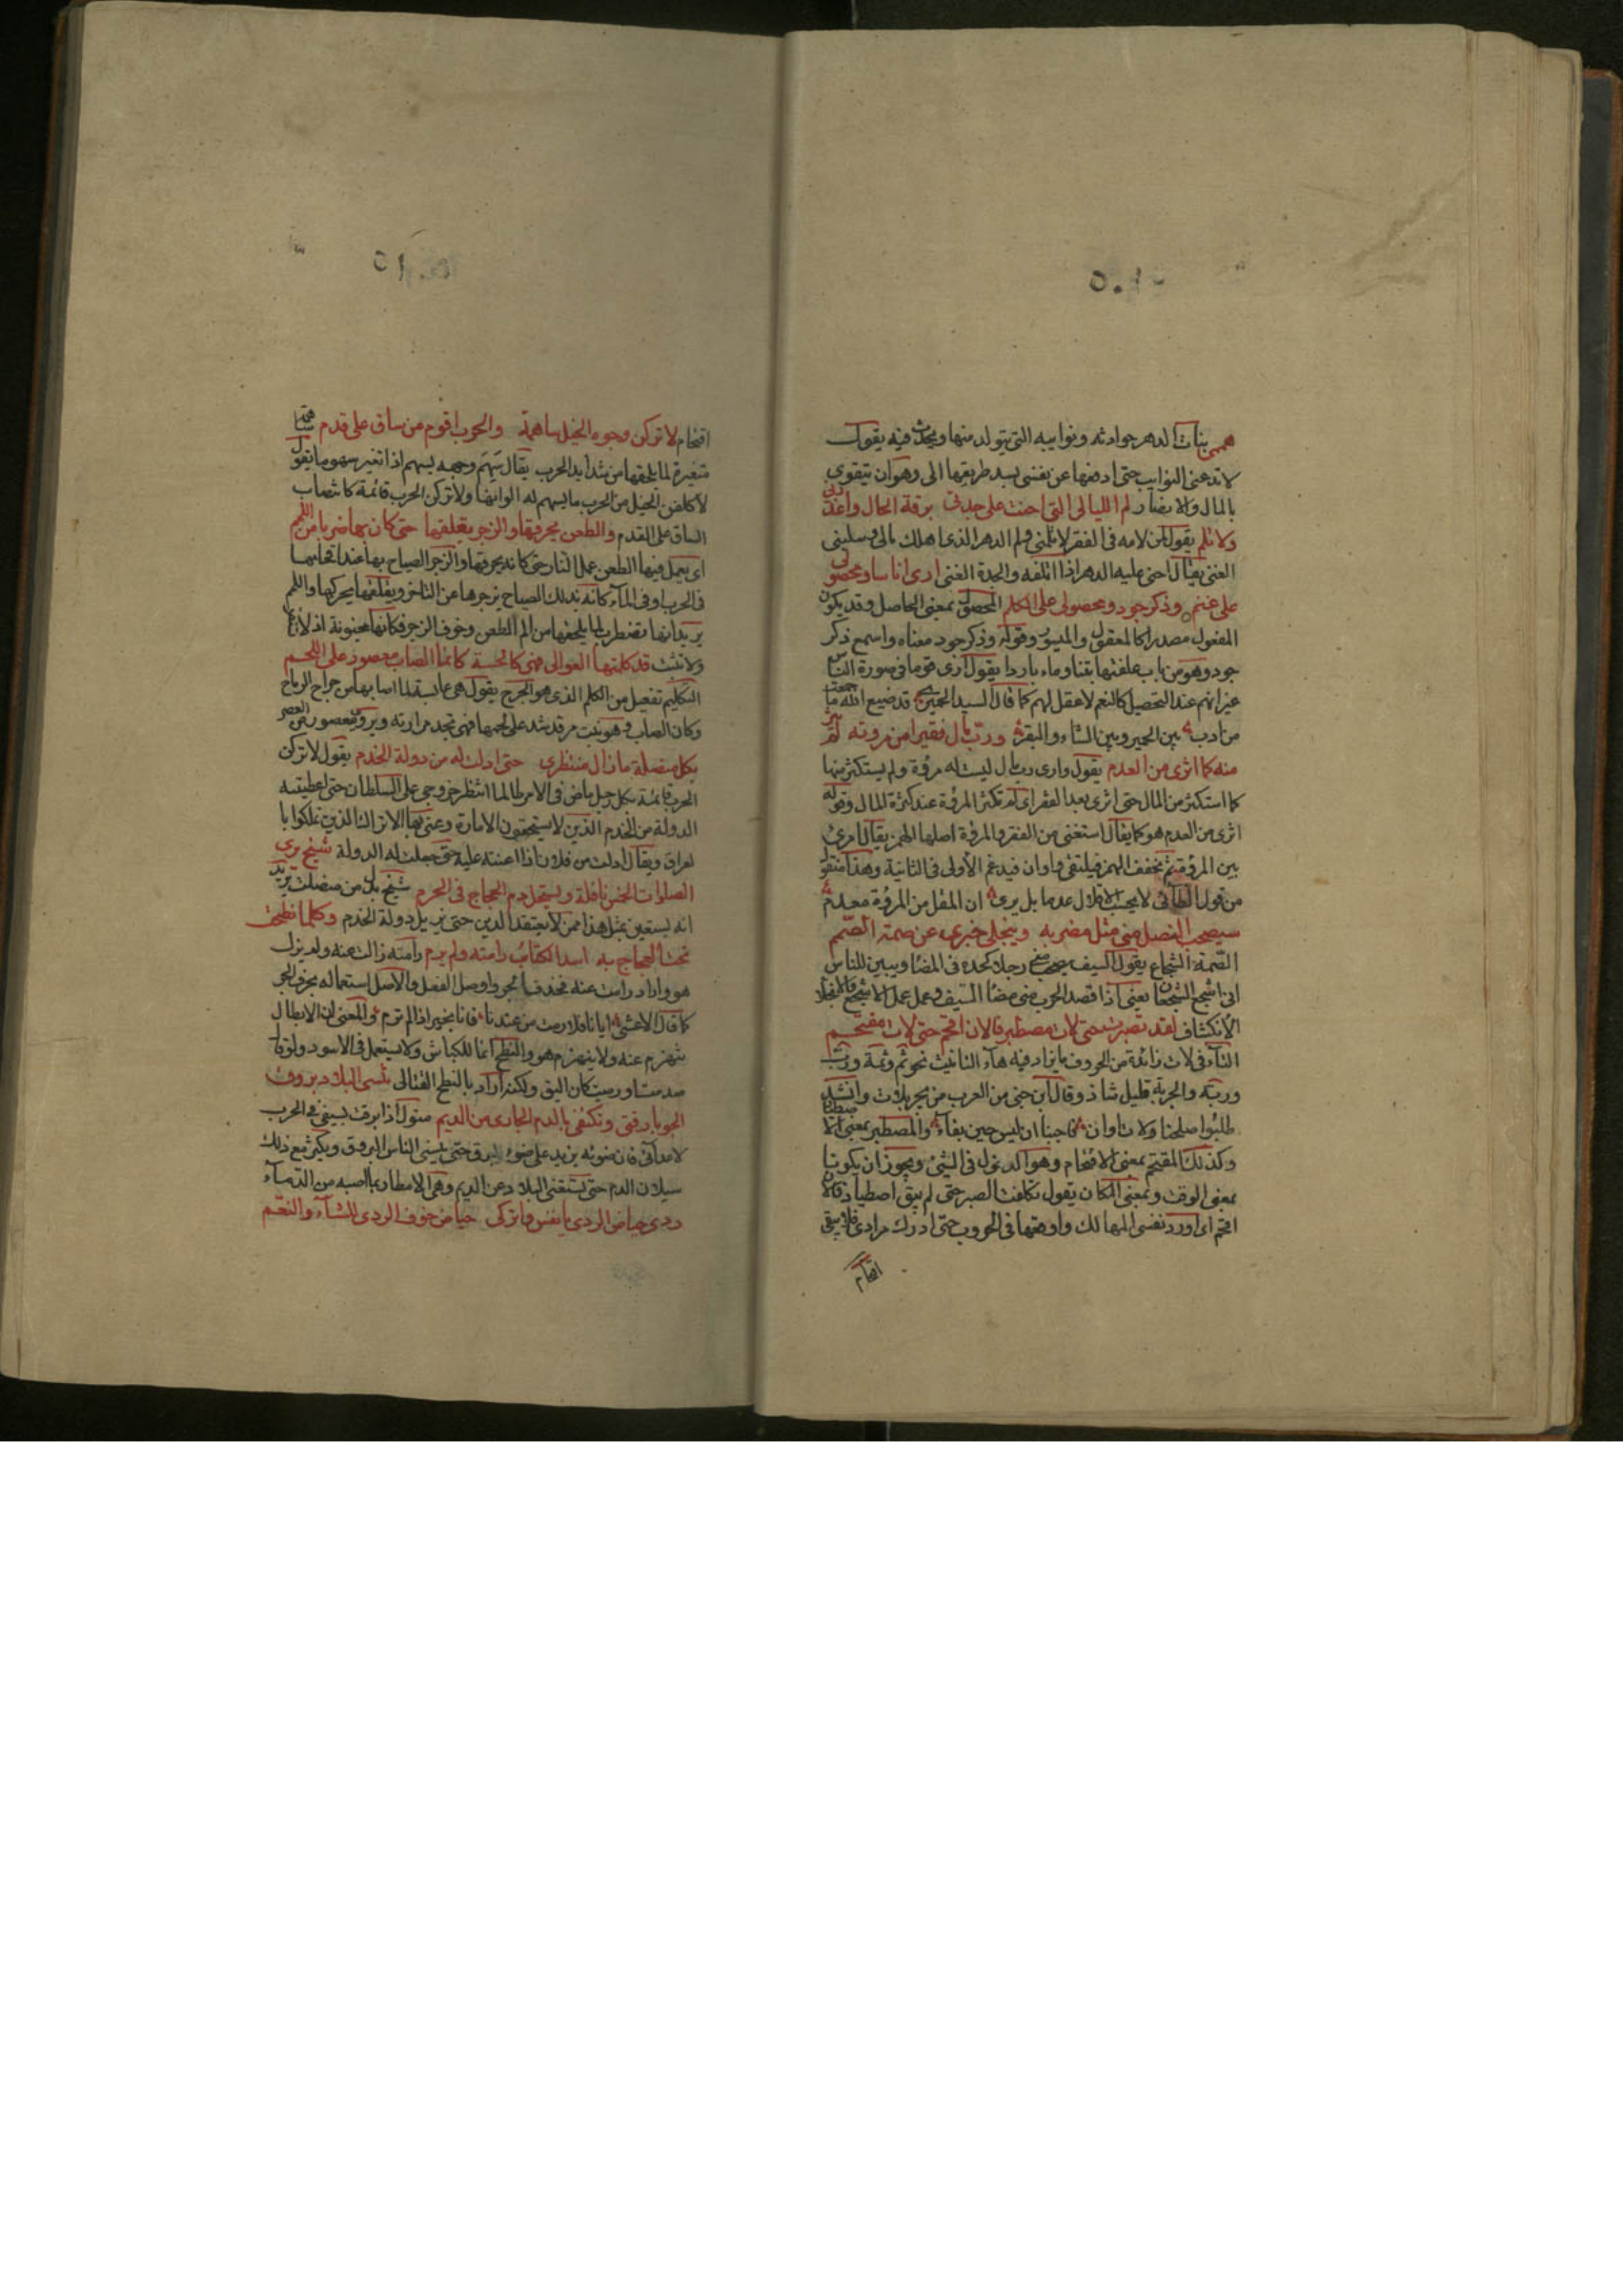 هممى بنات الدهر حوادثه ونوايبه التى يتولد منها ويحدث فيه يقول
لا تدعنى النوايب حتى ادفعها عن نفسى بسد طريقها الى وهو ان يتقوى
بالمال والانصار لم الليالى التى اخنت على جدتى برقة الحال واعذرنى
ولا تلم يقول لمن لامه فى الفقر لا تلمنى ولم الدهر الذى اهلك مالى وسلبنى
الغنى يقال اخنى عليه الدهر اذا اتلفه والجدة الغنى ارى اناسا ومحصولى
على غنم وذكر جود ومحصولى على الكلم المحصول بمعنى الحاصل وقد يكون
المفعول مصدرا كالمعقول والميسور وقوله وذكر جود معناه واسمع ذكر
جود وهو من باب علفتها تبنا وماء باردا يقول ارى قوما فى صورة الناس
غير انهم عند التحصيل كالنعم لا عقل لهم كما قال السيد الحميرى قد ضيع الله ما جمعت
من ادب بين الحمير وبين الشاء والبقر ورب مال فقيرا من مروته لم يثر
منه كما اثرى من العدم يقول وارى رب مال ليست له مروة ولم يستكثر منها
كما استكثر من المال حتى اثرى بعد الفقر اى لم تكثر المروة عند كثرة المال وقوله
اثرى من العدم هو كما يقال استغنى من الفقر والمروة اصلها الهمز يقال مرئ
بين المروة ثم تخفف الهمز فيلتقى واوان فيدغم الاولى فى الثانية وهذا منقول
من قول الطائى لا يحسب الاقلال عدما بل يرى ان المقل من المروة معدم
سيصحب النصل منى مثل مضربه وينجلى خبرى عن صمة الصمم
الصمة الشجاع يقول السيف يصحب منى رجلا كحده فى المضا ويبين للناس
انى اشجع الشجعان يعنى اذا قصد الحرب مضى مضا السيف وعمل عمل الاشجع والانجلا
الانكشاف لقد تصبرت حتى لات مصطبر فالان اقحم حتى لات مقتحم
التاء فى لات زائدة من الحروف ما يزاد فيه هاء التانيث نحو ثم وثمة ورب
وربة والجر به قليل شاذ وقال ابن جنى من العرب من يجر بلات وانشد
طلبوا صلحنا ولات اوان فاجبنا ان ليس حين بقاء والمصطبر بمعنى الاصطبار
وكذلك المقتحم بمعنى الاقتحام وهو الدخول فى الشئ ويجوز ان يكونا
بمعنى الوقت وبمعنى المكان يقول تكلفت الصبر حتى لم يبق اصطبار فالان
اقحم اى اورد نفسى المهالك واوقعها فى الحروب حتى ادرك مرادى فلا يبقى
اقتحام
اقتحام لا تركن وجوه الخيل ساهمة والحرب اقوم من ساق على قدم ساهمة
متغيرة لما يلحقها من شدايد الحرب يقال سهم وجهه يسهم اذا تغير سهوما يقول
لاكلفن الخيل من الحرب ما يسهم له الوانها ولا تركن الحرب قائمة كانتصاب
الساق على القدم والطعن يحرقها والزجر يقلقها حتى كان بها ضربا من اللمم
اى يعمل فيها الطعن عمل النار حتى كانه يحرقها والزجر الصياح بها عند اقحامها
فى الحرب او فى الماء كانه بذلك الصياح يزجرها عن التاخر ويقلقها يحركها واللمم
يريد انها تضطرب لما يلحقها من الم الطعن وخوف الزجر فكانها مجنونة اذ لا
ولا تثبت قد كلمتها العوالى فهى كالحة كانما الصاب معصور على اللجم
التكليم تفعيل من الكلم الذى هو الجرح يقول هى عابسة لما اصابها من جراح الرماح
وكان الصاب وهو نبت مر قد شد على لجمها فهى تجد مرارته ويروى معصور من العصر
بكل منصلت ما زال منتظرى حتى ادلت له من دولة الخدم يقول لا تركن
الحرب قائمة بكل رجل ماض فى الامر طالما انتظر خروجى على السلطان حتى اعطيته
الدولة من الخدم الذين لا يستحقون الامارة وعنى بها الاتراك الذين تملكوا با
لعراق ويقال ادلت من فلان اذا اعنته عليه حتى جعلت له الدولة شيخ يرى
الصلوات الخمس نافلة ويستحل دم الحجاج فى الحرم شيخ بدل من منصلت يريد
انه يستعين بمثل هذا ممن لا يعتقد الدين حتى يزيل دولة الخدم وكلما نطحت
تحت العجاج به اسد الكتائب رامته ولم يرم رامته زالت عنه ولم يزل
هو واراد رامت عنه فحذف الجر واوصل الفعل والاصل استعماله بحرف الجر
كما قال الاعشى ايانا فلا رمت من عندنا فانا بخير اذا لم ترم والمعنى ان الابطال
تنهزم عنه ولا ينهزم هو والنطح انما للكباش ولا يستعمل فى الاسود ولو قال
صدمت او رميت كان اليق ولكنه اراد بالنطح القتال تنسى البلاد بروق
الجو بارقتى وتكتفى بالدم الجارى من الديم يقول اذا برقت سيفى فى الحرب
لاعدائى فان ضوئه يزيد على ضوء البرق حتى ينسى الناس البروق ويكثر مع ذلك
سيلان الدم حتى يستغنى البلاد عن الديم وهى الامطار بما اصبه من الدماء
ردى حياض الردى يا نفس واتركى حياض خوف الردى للشاء والنعم